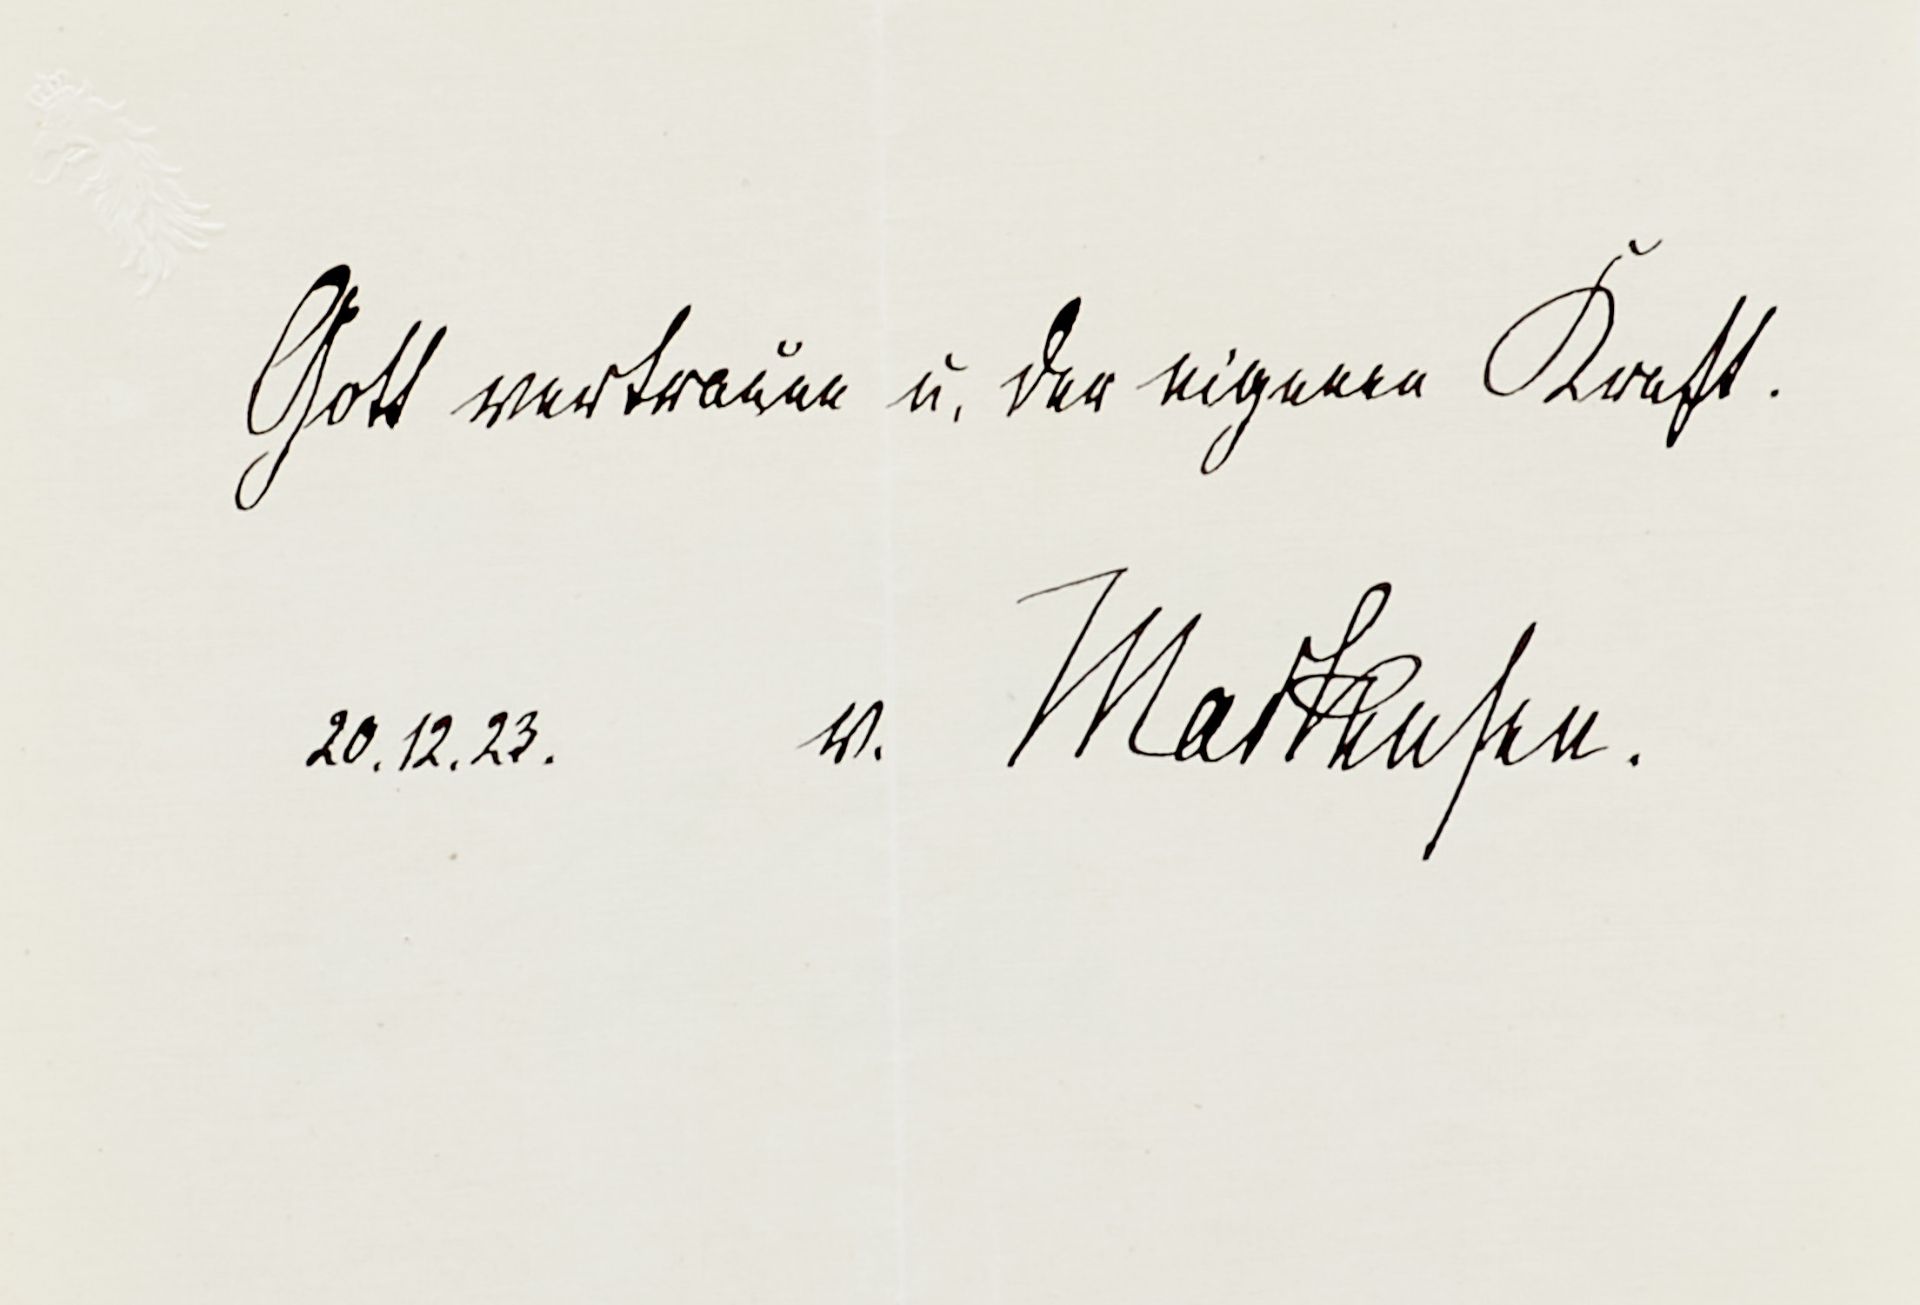 Gott vertraue u. der eigenen Kraft.
20.12.23. v. Mackensen.